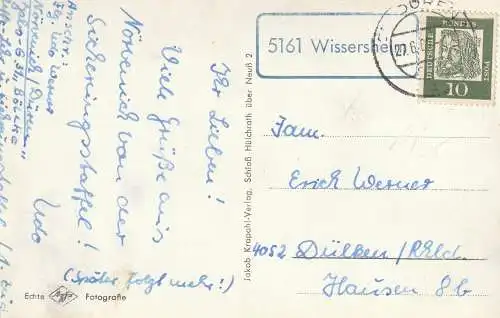 Ihr Lieben!
Viele Grüße aus
Nörvenich von der
Sicherungsstaffel!
Udo
(Später folgt mehr!)
Anschr.:
Udo Werner
Nörvenich / Düren
Echte Agfa Fotografie
Jakob Krapohl-Verlag, Schloß Hülchrath über Neuß 2
5161 Wissersheim
DEUTSCHE BUNDESPOST
10
Fam.
Erich Werner
4052 Dülken/Rhld.
Hausen 8b